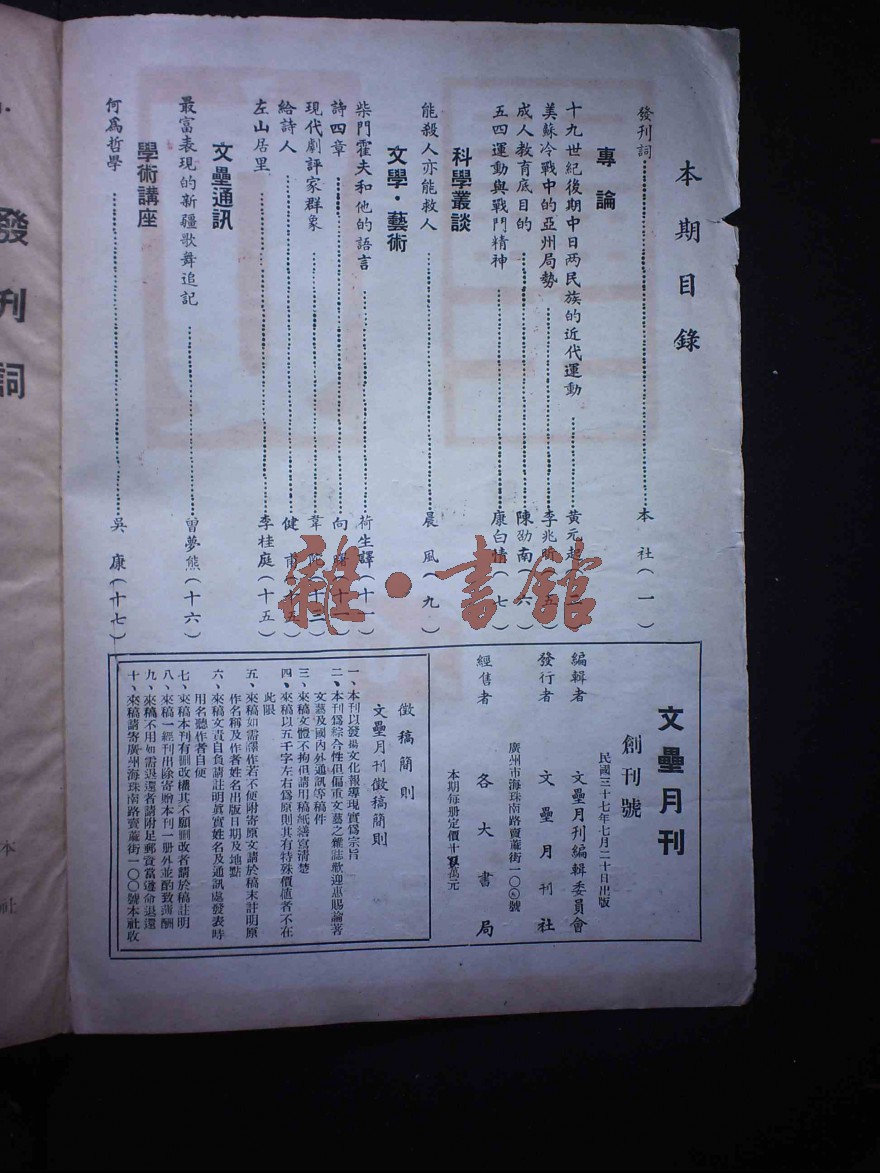 本期目錄
發刊詞 本社(一)
專論
十九世紀後期中日两民族的近代運動 黃元起(二)
美蘇冷戰中的亞州局勢 李兆昕(五)
成人教育底目的 陳劭南(六)
五四運動與戰鬥精神 康白情(七)
科學叢談
能殺人亦能救人 晨風(九)
文學·藝術
柴門霍夫和他的語言 荷生譯(十一)
詩四章 向曙(十一)
現代劇評家群象 (十三)
給詩人 健甫(十五)
左山居里 李桂庭(十五)
文壘通訊
最富表現的新疆歌舞追記 曾夢熊(十六)
學術講座
何爲哲學 吳康(十七)
文壘月刊
創刊號
民國三十七年七月二十日出版
編輯者 文壘月刊編輯委員會
發行者 文壘月刊社
廣州市海珠南路賣蔴街一〇〇號
經售者 各大書局
本期每册定價十萬元
徵稿簡則
文壘月刊徵稿簡則
一、本刊以發揚文化報導現實爲宗旨
二、本刊爲綜合性但偏重文藝之雜誌歡迎惠賜論著
文藝及國內外通訊等稿件
三、來稿文體不拘但請用稿紙繕寫清楚
四、來稿以五千字左右爲原則其有特殊價值者不在
此限
五、來稿如需譯作若不便附寄原文請於稿末註明原
作名稱及作者姓名出版日期及地點
六、來稿文責自負請註明眞實姓名及通訊處發表時
用名聽作者自便
七、來稿本刊有刪改權其不願刪改者請於稿註明
八、來稿一經刊出除寄贈本刊一册外並酌致薄酬
九、來稿不用如需退還者請附足郵資當遵命退還
十、來稿請寄廣州海珠南路賣蔴街一〇〇號本社收
發刊詞
本
社
雜·書館